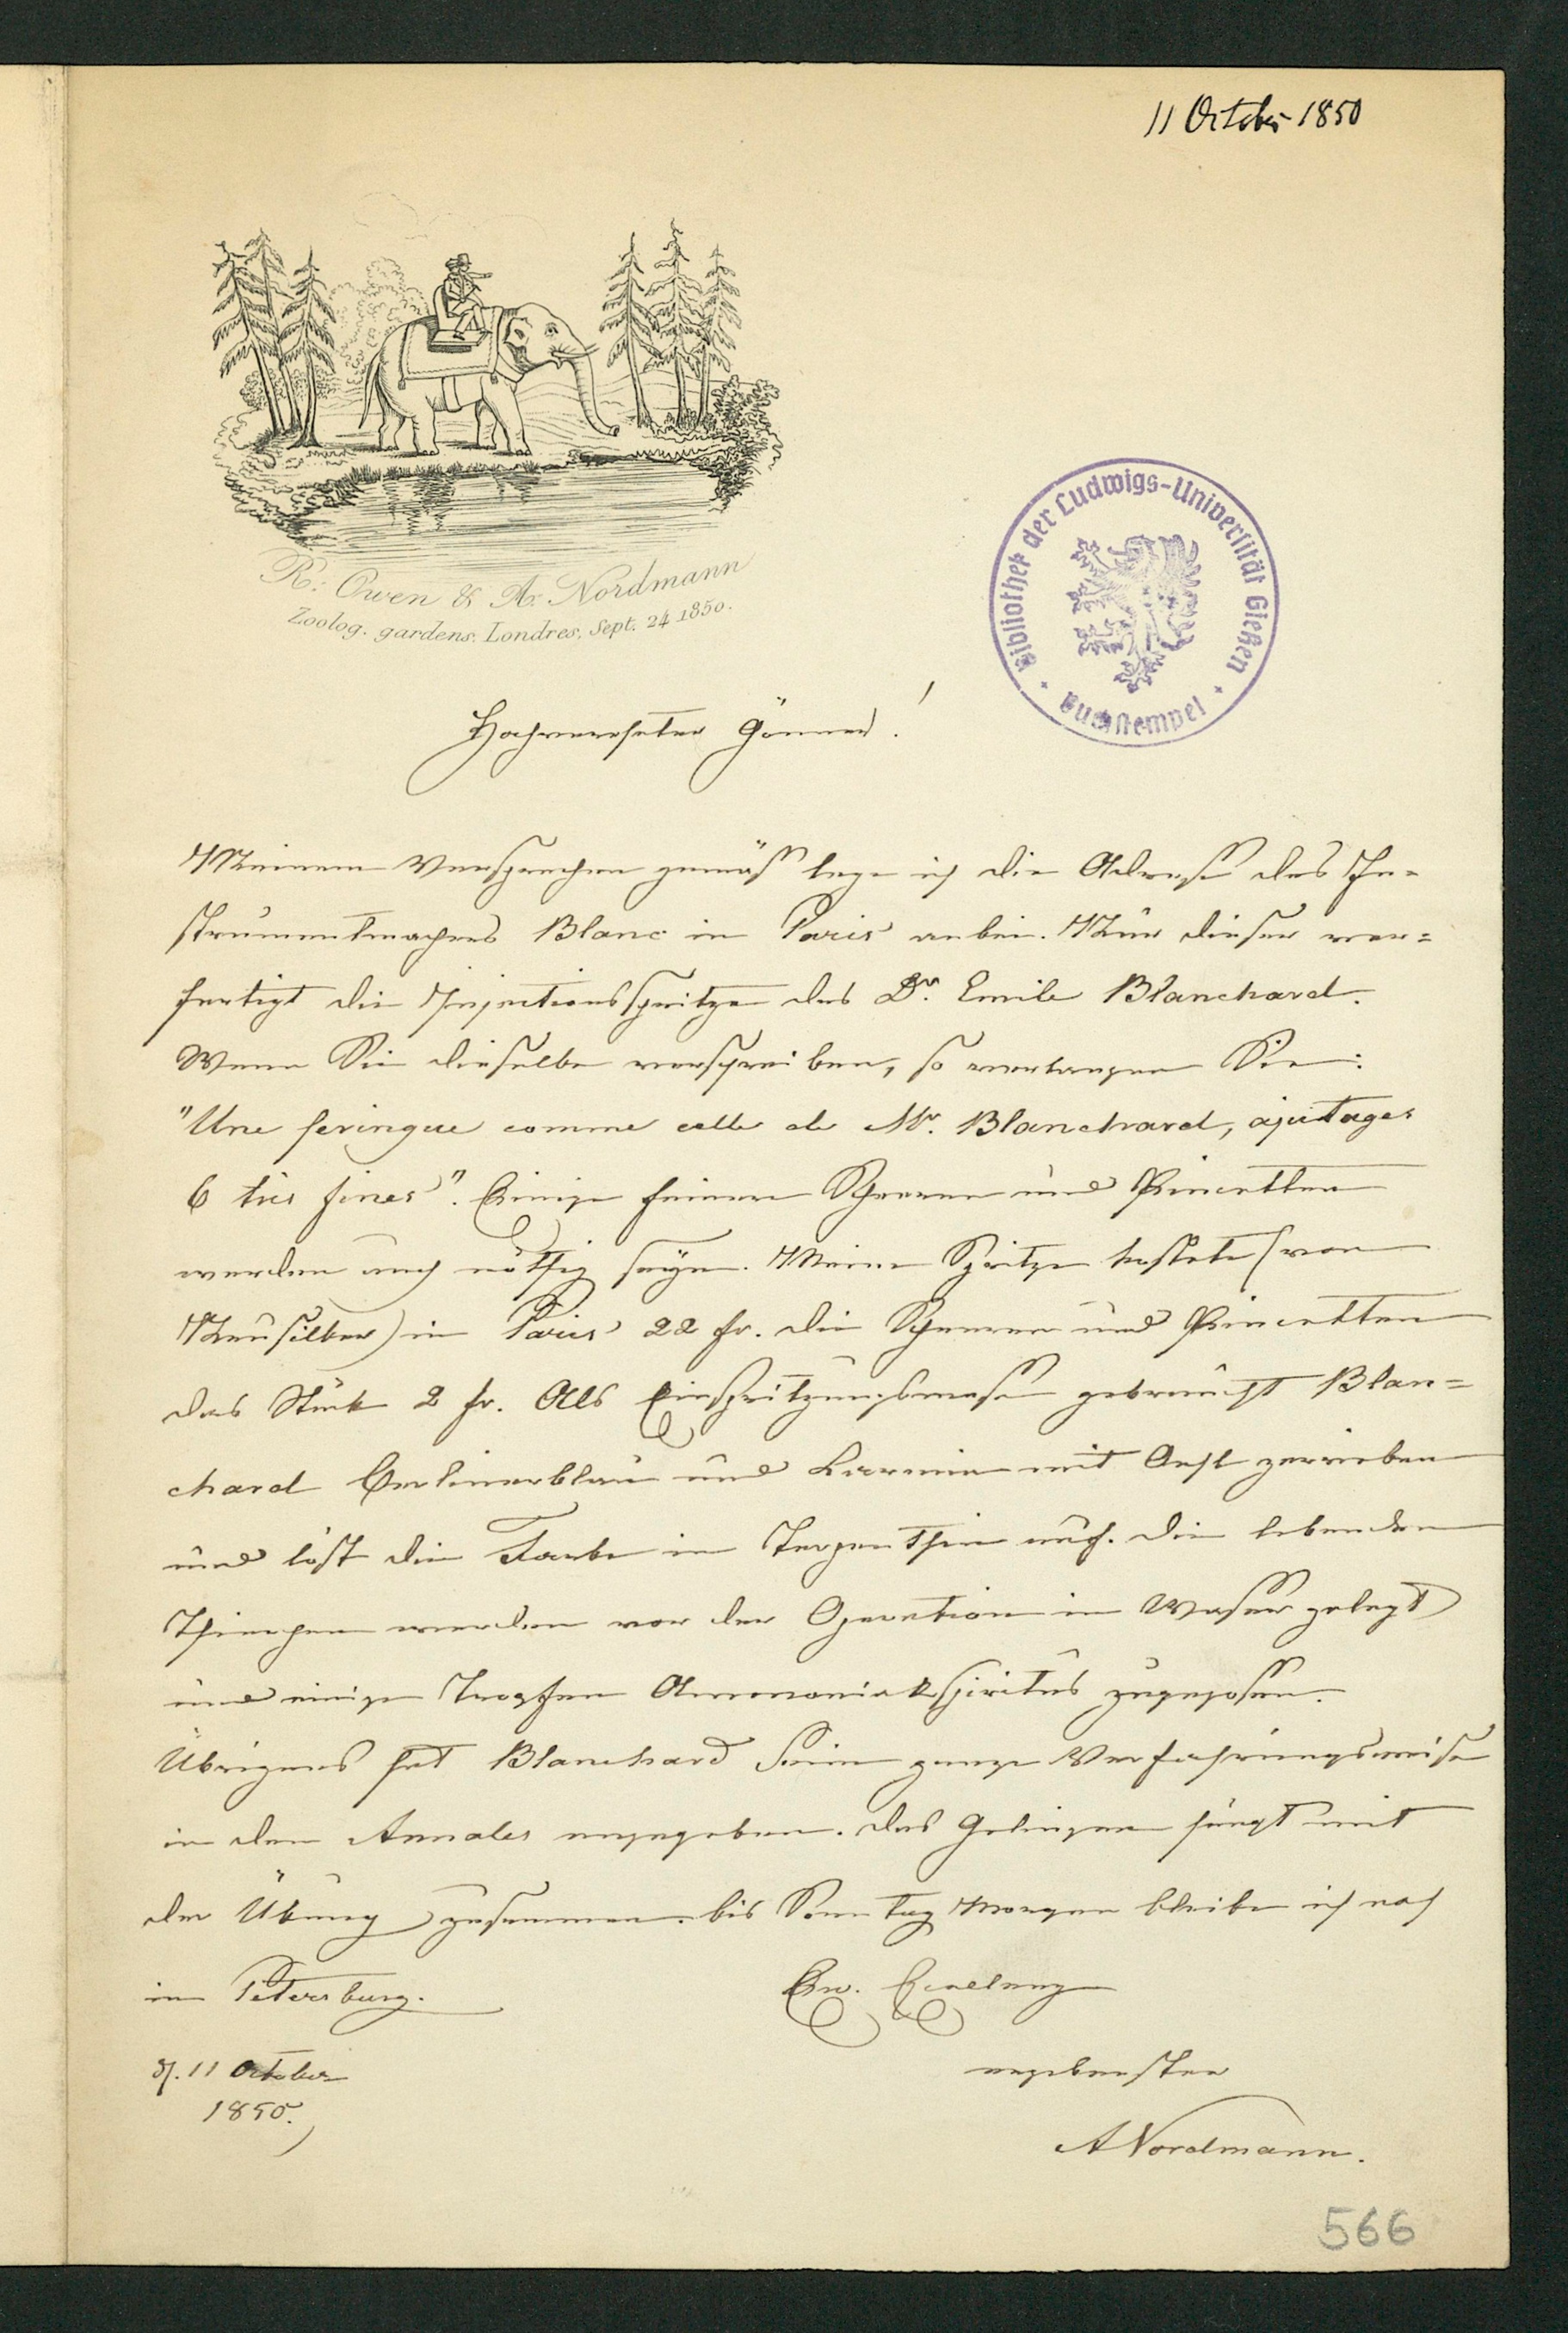 11 October 1850
R: Owen & A: Nordmann
Zoolog. gardens. Londres, Sept. 24 1850.
Bibliothek der Ludwigs-Universität Gießen
Buchstempel
Hochverehrter Gönner!
Meinem Versprechen gemäß lege ich die Adresse des In-
strumentmachers Blanc in Paris anbei. Nur dieser ver=
fertigt die Injectionsspritze des Dr. Emile Blanchard.
Wenn Sie dieselbe verschreiben, so verlangen Sie:
"Une seringue comme celle de Mr. Blanchard, ajutages
6 très fines". Einige feinere Scheeren und Pincetten
werden auch nöthig seyn. Meine Spritze kostete (von
Neusilber) in Paris 22 fr. die Scheeren und Pincetten
das Stück 2 fr. Als Einspritzungsmasse gebraucht Blan=
chard Berlinerblau und Karmin mit Oehl zerrieben
und löst die Farbe in Terpenthin auf. Die lebenden
Thierchen werden vor der Operation in Wasser gelegt
und einige Tropfen Ammoniakspiritus zugegossen.
Übrigens hat Blanchard seine ganze Verfahrungsweise
in den Annales angegeben. Das Gelingen hängt mit
der Übung zusammen. bis Sonntag Morgen bleibe ich noch
in Petersburg.
Ew. Excellenz
d. 11 October
1850.
ergebenster
ANordmann.
566